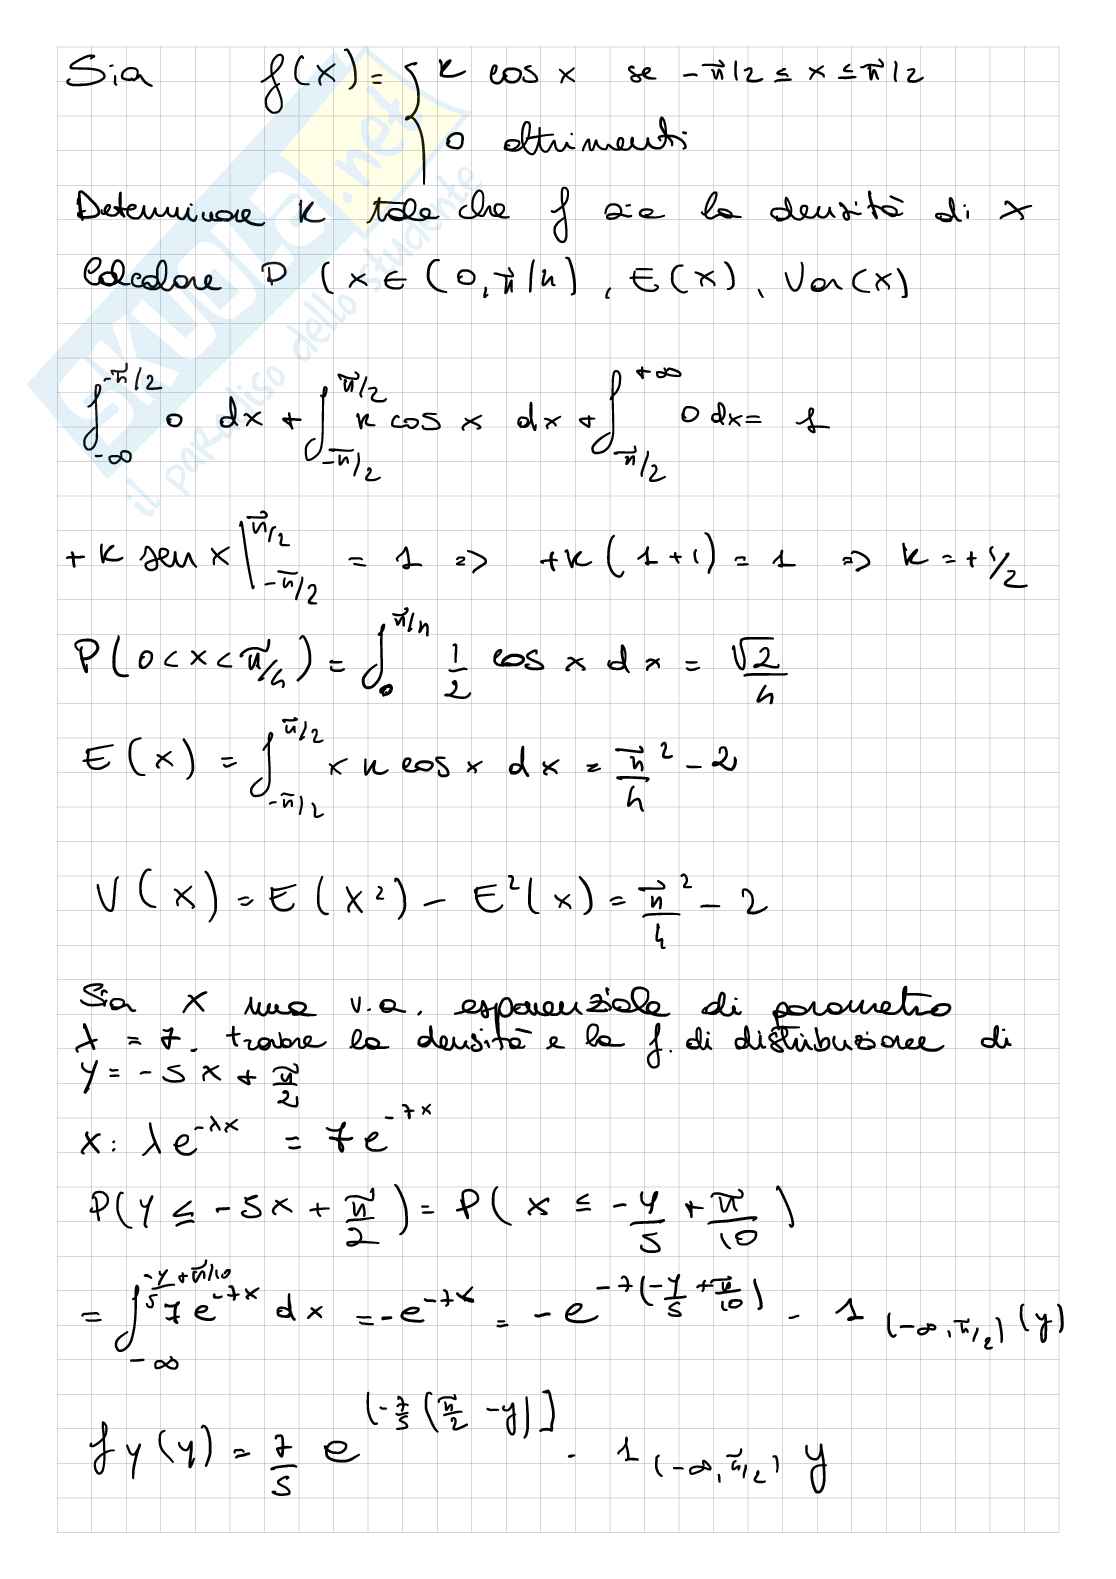 Sia f(x) = { k cos x se -π/2 ≤ x ≤ π/2
0 altrimenti
Determinare k tale che f sia la densità di x
Calcolare P (x ∈ (0, π/4), E(x), Var(x)
∫_{-∞}^{-π/2} 0 dx + ∫_{-π/2}^{π/2} k cos x dx + ∫_{π/2}^{+∞} 0 dx = 1
+ k sen x |_{-π/2}^{π/2} = 1 => +k (1+1) = 1 => k = + 1/2
P(0 < x < π/4) = ∫_0^{π/4} 1/2 cos x dx = √2/4
E(x) = ∫_{-π/2}^{π/2} x k cos x dx = π²/4 - 2
V(x) = E(x²) - E²(x) = π²/4 - 2
Sia X una v.a. esponenziale di parametro
λ = 7. trovare la densità e la f. di distribuzione di
y = -5x + π/2
x: λe^{-λx} = 7e^{-7x}
P(y ≤ -5x + π/2) = P(x ≤ -y/5 + π/10)
= ∫_{-∞}^{-y/5 + π/10} 7e^{-7x} dx = -e^{-7x} = -e^{-7(-y/5 + π/10)} - 1_{(-∞, π/2)} (y)
f y (y) = 7/5 e^{[-7/5 (π/2 - y)]} · 1_{(-∞, π/2)} y
SKUOLA.net
il paradiso dello studente